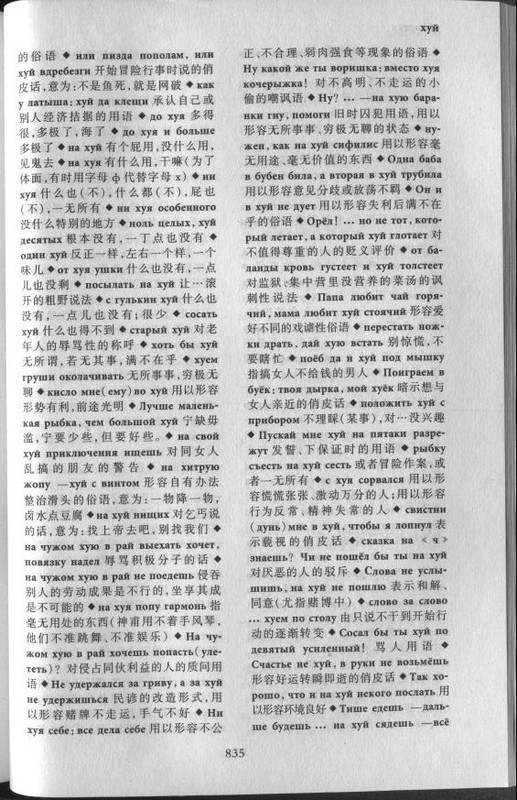 хуй
的俗语 ◆ или пизда пополам, или
хуй вдребезги 开始冒险行事时说的俏
皮话,意为:不是鱼死,就是网破 ◆ как
у латыша: хуй да клещи 承认自己或
别人经济拮据的用语 ◆ до хуя 多得
很,多极了,海了 ◆ до хуя и больше
多极了 ◆ на хуй 有个屁用,没什么用,
见鬼去 ◆ на хуя 有什么用,干嘛(为了
体面,有时用字母 ф 代替字母 х) ◆ ни
хуя 什么也(不),什么都(不),屁也
(不),一无所有 ◆ ни хуя особенного
没什么特别的地方 ◆ ноль целых, хуй
десятых 根本没有,一丁点也没有 ◆
один хуй 反正一样,左右一个样,一个
味儿 ◆ от хуя ушки 什么也没有,一点
儿也没剩 ◆ посылать на хуй 让…滚
开的粗野说法 ◆ с гулькин хуй 什么也
没有,一点儿也没有;很少 ◆ сосать
хуй 什么也得不到 ◆ старый хуй 对老
年人的辱骂性的称呼 ◆ хоть бы хуй
无所谓,若无其事,满不在乎 ◆ хуем
груши околачивать 无所事事,穷极无
聊 ◆ кисло мне(ему) во хуй 用以形容
形势有利,前途光明 ◆ Лучше малень-
кая рыбка, чем большой хуй 宁缺毋
滥,宁要少些,但要好些。 ◆ на свой
хуй приключения ищешь 对同女人
乱搞的朋友的警告 ◆ на хитрую
жопу —хуй с винтом 形容自有办法
整治滑头的俗语,意为:一物降一物,
卤水点豆腐 ◆ на хуй нищих 对乞丐说
的话,意为:找上帝去吧,别找我们 ◆
на чужом хую в рай выехать хочет,
повязку надел 辱骂积极分子的话 ◆
на чужом хую в рай не поедешь 侵吞
别人的劳动成果是不行的,坐享其成
是不可能的 ◆ на хуя попу гармонь 指
毫无用处的东西(神甫用不着手风琴,
他们不准跳舞、不准娱乐) ◆ На чу-
жом хую в рай хочешь попасть(уле-
теть)? 对侵占同伙利益的人的质问用
语 ◆ Не удержался за гриву, а за хуй
не удержишься 民谚的改造形式,用
以形容赌牌不走运,手气不好 ◆ Ни
хуя себе: все дела себе 用以形容不公
正、不合理、弱肉强食等现象的俗语 ◆
Ну какой же ты воришка: вместо хуя
кочерыжка! 对不高明、不走运的小
偷的嘲讽语 ◆ Ну? … —на хую бара-
нки гну, помоги 旧时囚犯用语,用以
形容无所事事、穷极无聊的状态 ◆ ну-
жен, как на хуй сифилис 用以形容毫
无用途、毫无价值的东西 ◆ Одна баба
в бубен била, а вторая в хуй трубила
用以形容意见分歧或放荡不羁 ◆ Он и
в хуй не дует 用以形容失利后满不在
乎的俗语 ◆ Орёл! … но не тот, кото-
рый летает, а который хуй глотает 对
不值得尊重的人的贬义评价 ◆ от ба-
ланды кровь густеет и хуй толстеет
对监狱、集中营里没营养的菜汤的讽
刺性说法 ◆ Папа любит чай горя-
чий, мама любит хуй стоячий 形容爱
好不同的戏谑性俗语 ◆ перестать нож-
ки драть, дай хую встать 别惊慌,不
要瞎忙 ◆ поёб да и хуй под мышку
指搞女人不给钱的男人 ◆ Поиграем в
буёк: твоя дырка, мой хуёк 暗示想与
女人亲近的俏皮话 ◆ положить хуй с
прибором 不理睬(某事),对…没兴趣
◆ Пускай мне хуй на пятаки разре-
жут 发誓、下保证时的用语 ◆ рыбку
съесть на хуй сесть 或者冒险作案,或
者一无所有 ◆ с хуя сорвался 用以形
容慌慌张张、激动万分的人;用以形容
行为反常、精神失常的人 ◆ свистни
(дунь) мне в хуй, чтобы я лопнул 表
示藐视的俏皮话 ◆ сказка на <ч>
знаешь? Чи не пошёл бы ты на хуй
对厌恶的人的驳斥 ◆ Слова не услы-
шишь, на хуй не пошлю 表示和解、
同意(尤指赌博中) ◆ слово за слово
… хуем по столу 由只说不干到开始行
动的逐渐转变 ◆ Сосал бы ты хуй по
девятый усиленный! 骂人用语 ◆
Счастье не хуй, в руки не возьмёшь
形容好运转瞬即逝的俏皮话 ◆ Так хо-
рошо, что и на хуй некого послать 用
以形容环境良好 ◆ Тише едешь —даль-
ше будешь … на хуй сядешь —всё
835